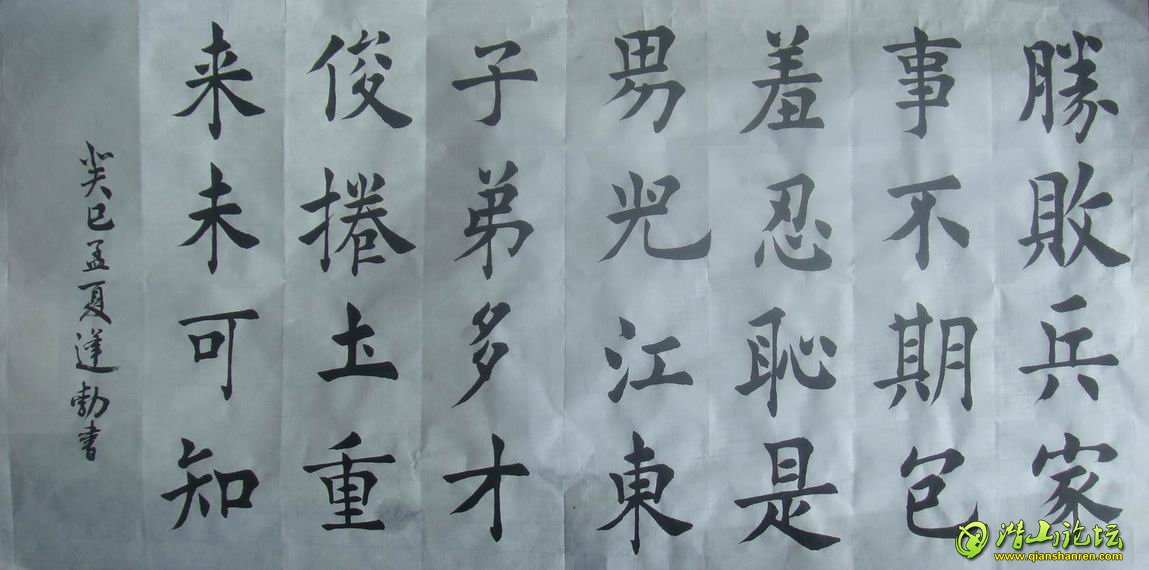 勝敗兵家
事不期包
羞忍恥是
男児江東
子弟多才
俊捲土重
来未可知
癸巳孟夏蓬勃書
潜山论坛
www.qianshanren.com